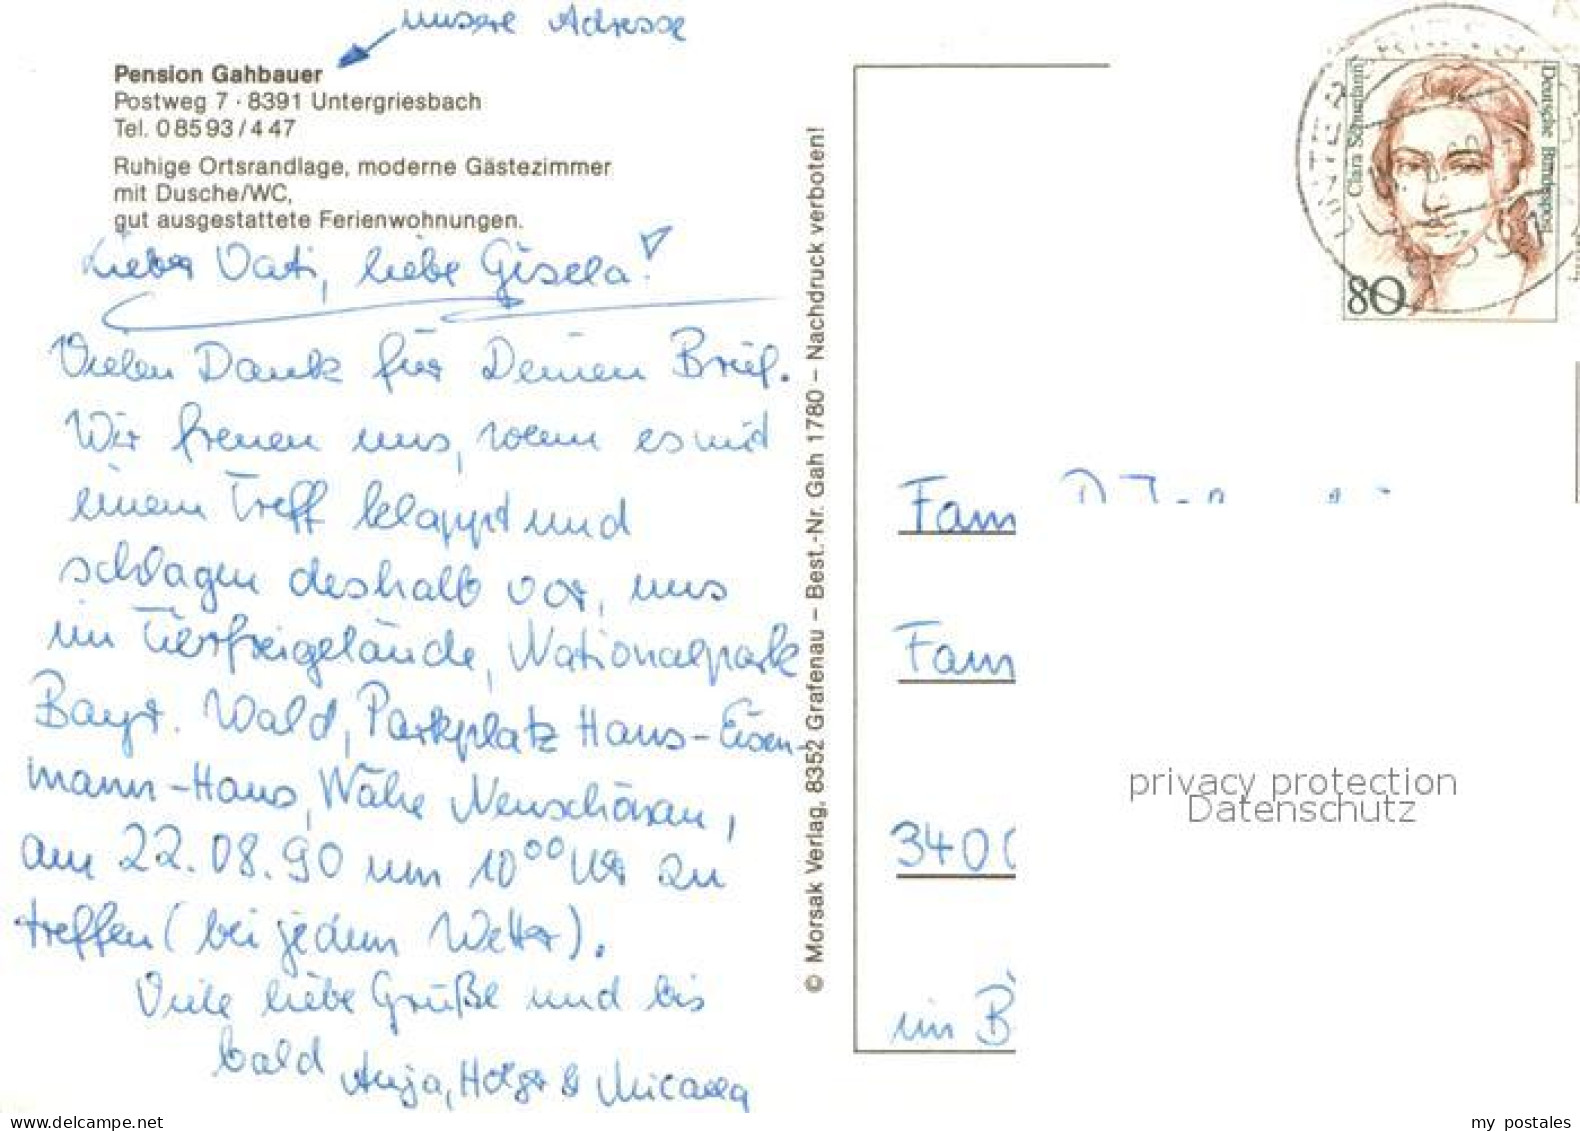 unsere Adresse
Pension Gahbauer
Postweg 7 · 8391 Untergriesbach
Tel. 08593/447
Ruhige Ortsrandlage, moderne Gästezimmer
mit Dusche/WC,
gut ausgestattete Ferienwohnungen.
Lieber Vati, liebe Gisela!
Vielen Dank für Deinen Brief.
Wir freuen uns, wenn es mit
einem Treff klappt und
schlagen deshalb vor, uns
im Tierfreigelände, Nationalpark
Bayr. Wald, Parkplatz Hans-Eisen-
mann-Haus, Nähe Neuschönau,
am 22.08.90 um 10⁰⁰ Uhr zu
treffen (bei jedem Wetter).
Viele liebe Grüße und bis
bald Anja, Holger &
© Morsak Verlag, 8352 Grafenau – Best.-Nr. Gah 1780 – Nachdruck verboten!
Clara Schumann
Deutsche Bundespost
80
Fam
Fam
3400
im B
privacy protection
Datenschutz
my postales
www.delcampe.net